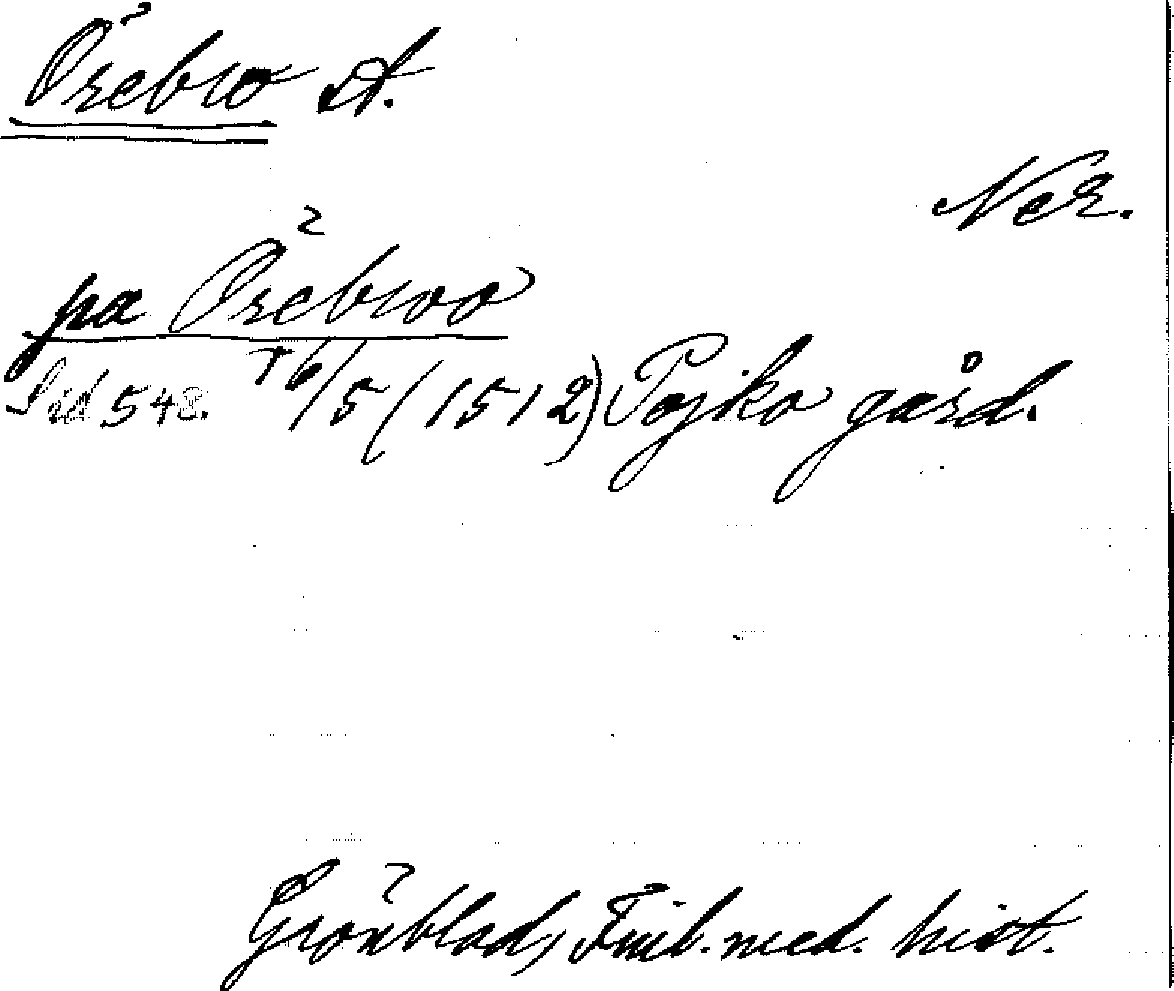 Örebro st.
Ner.
pa Örebroo
Sid 548. 16/5 (1512) Pojko gård.
Grönblad, Finl. med. hist.